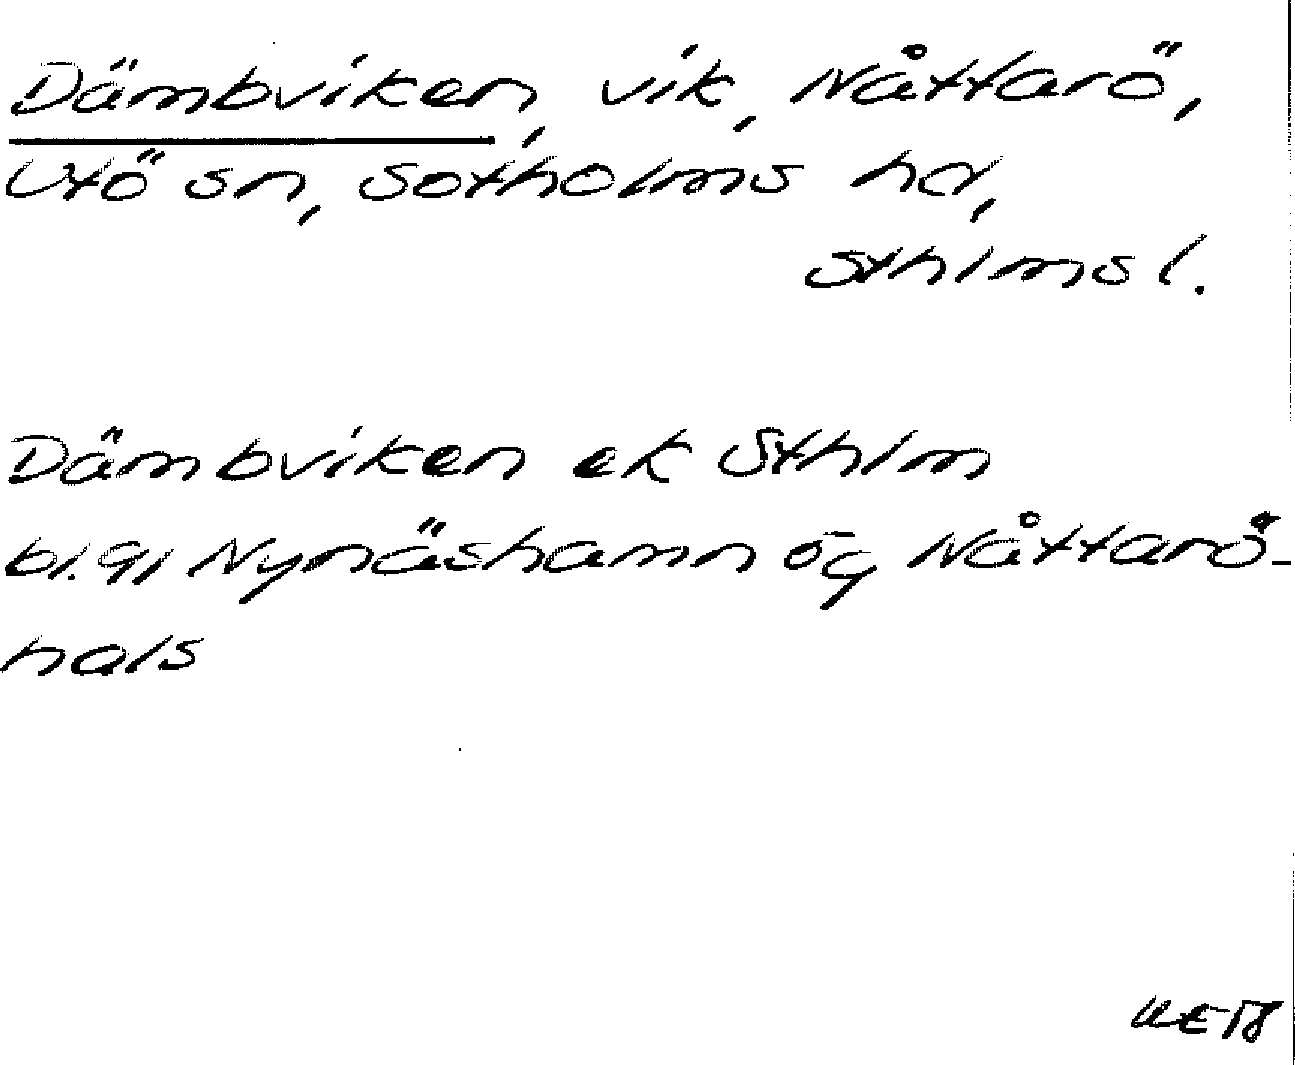 Dämbviken, vik, Nåttarö,
Utö sn, Sotholms hd,
Sthlms l.
Dämbviken ek Sthlm
bl. 91 Nynäshamn ög Nåttarö-
hals